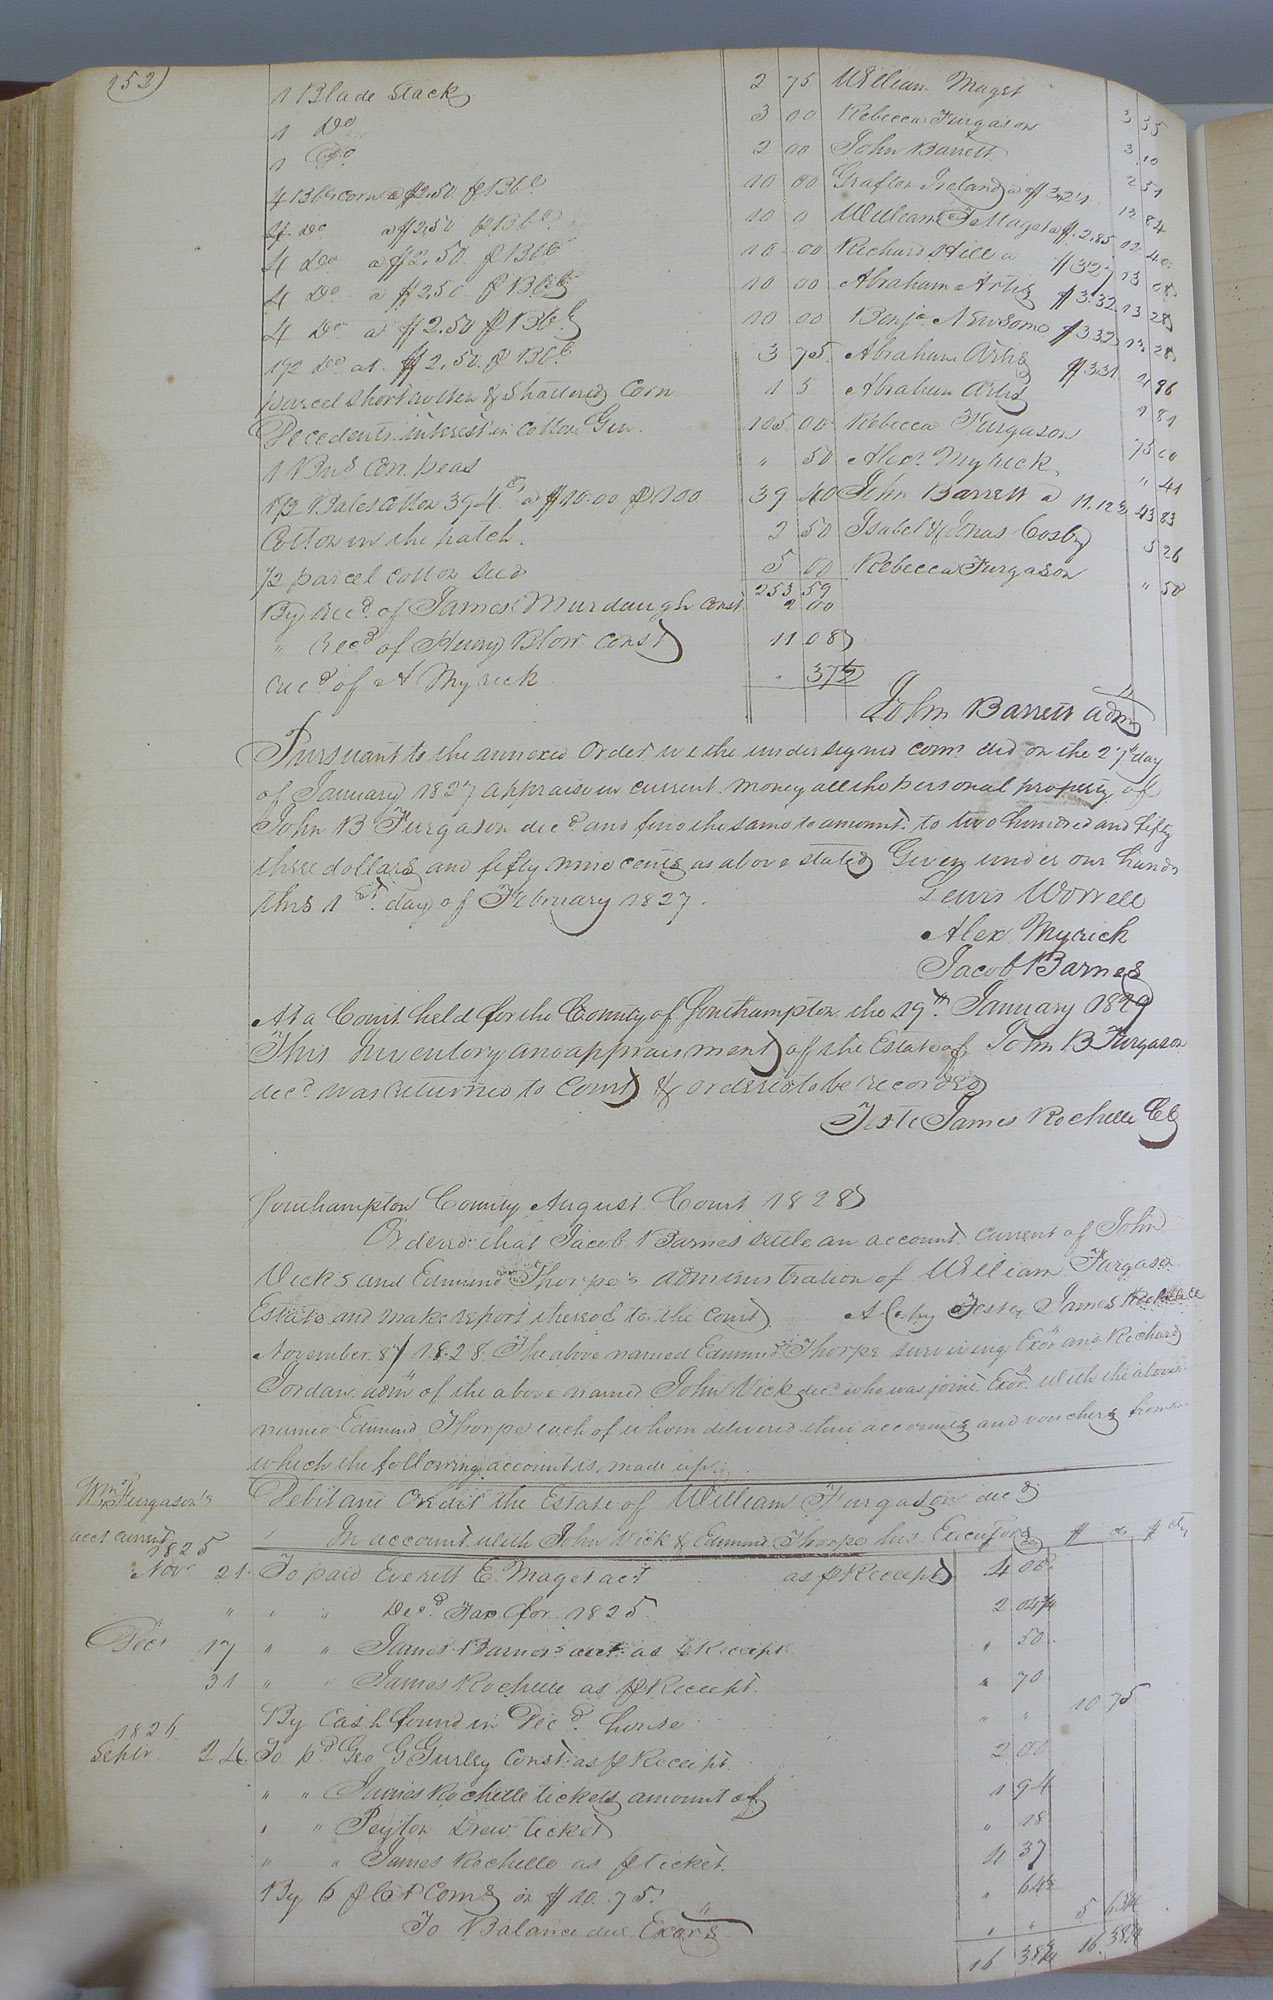 152)
1 Blade Stack 2 75 William Maget 3 35
1 Do 3 00 Rebecca Furgason 3 10
1 Do 2 00 John Barrett 2 51
4 Bbls corn a $2.50 p Bbl 10 00 Grafton Ireland a $3.21 12 84
4 Do a $2.50 p Bbl 10 0 William T Maget a $2.85 12 40
4 Do a $2.50 p Bbl 10 00 Richard Hill a $3.27 13 08
4 Do a $2.50 p Bbl 10 00 Abraham Artis $3.32 13 28
4 Do at $2.50 p Bbl 10 00 Benja Newsome $3.32 13 28
1½ Do at $2.50 p Bbl 3 75 Abraham Artis $3.31 4 96
parcel short rotten & Shattered Corn 1 5 Abraham Artis 1 81
Decedents interest in cotton Gin 105 00 Rebecca Furgason 75 00
1 Bus Corn peas " 50 Alexr Myrick " 41
1½ Bales cotton 394 lbs a $10.00 p 100 39 40 John Barrett a 11.12½ 43 83
Cotton in the patch 2 50 Isabel & Jonas Cosby 5 26
½ parcel cotton seed 5 00 Rebecca Furgason " 50
253 59
By Recd of James Murdaugh Const 2 00
" Recd of Henry Blow Const 11 08
Recd of A Myrick " 37½
John Barrett admr
Pursuant to the annexed Order we the undersigned comrs did on the 27th day
of January 1827 appraise in current money all the personal property of
John B Furgason decd and find the same to amount to two hundred and fifty
three dollars and fifty nine cents as above stated Given under our hands
this 1st day of February 1827.
Lewis Worrell
Alex Myrick
Jacob Barnes
At a Court held for the County of Southampton the 19th January 1829
This Inventory and appraisment of the Estate of John B Furgason
decd was returned to Court & ordered to be recorded
Teste James Rochelle CC
Southampton County August Court 1828
Ordered that Jacob Barnes settle an account current of John
Vick's and Edmund Thorpe's administration of William Furgason
Estate and make report thereof to the Court A Copy Teste James Rochelle
November 8/ 1828. The above named Edmund Thorpe surviving Exor and Richard
Jordan admr of the above named John Vick decd who was joint Exor with the above
named Edmund Thorpe each of whom delivered their accounts and vouchers from
which the following account is made up
Wm Furgason's
acct current
Debit and Credit the Estate of William Furgason decd
In account with John Vick & Edmund Thorpe his Executors $ cts $ cts
1825
Novr 21 To paid Everitt E. Maget act as p Receipt 4 00
" " " Decd Tax for 1825 2 04
Decr 17 " " James Barnes acct as p Receipt " 50
31 " " James Rochelle as p Receipt " 70
By Cash found in Decd house " " 10 75
1826
Septr 24 To pd Geo G Gurley Const as p Receipt 2 00
" " James Rochelle tickets amount of 1 94
" " Peyton Drew ticket " 18
" " James Rochelle as p ticket 4 37
By 6 p Ct Coms on $10.75 " 64½
To Balance due Exors " " 5 63¼
16 38¼ 16 38¼